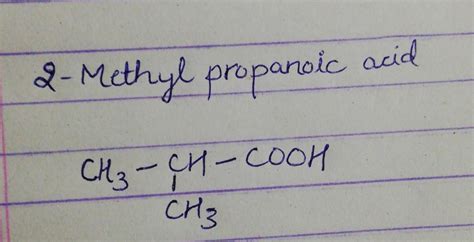 2-Methyl propanoic acid
CH₃-CH-COOH
CH₃